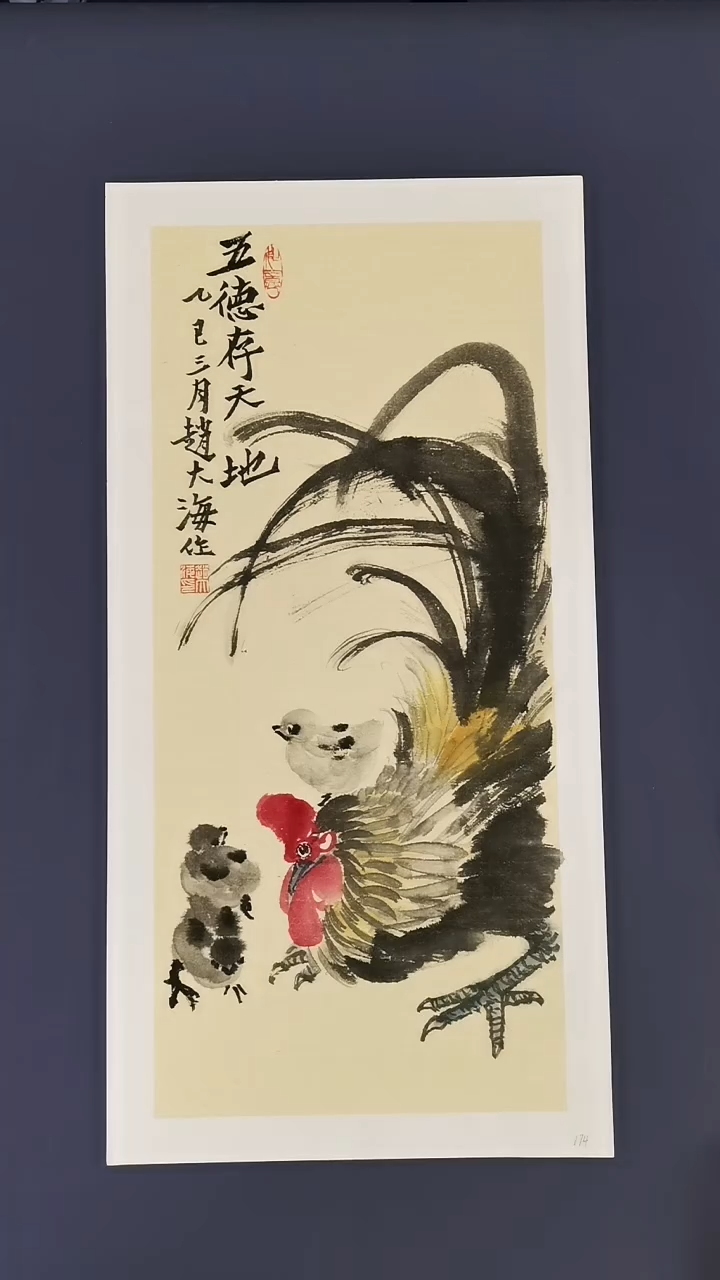 五德存天地
乙巳三月趙大海作
174